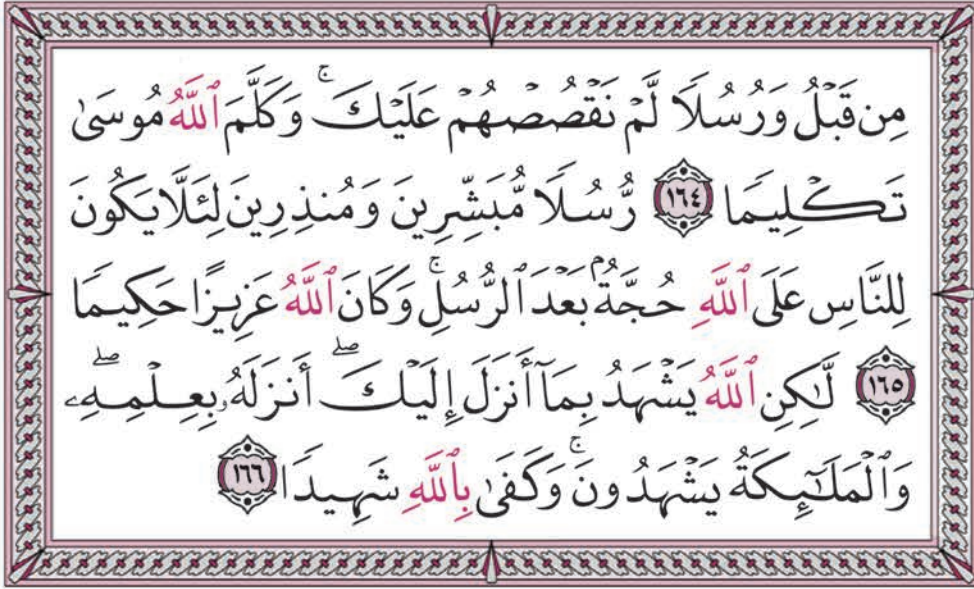 مِن قَبْلُ وَرُسُلًا لَّمْ نَقْصُصْهُمْ عَلَيْكَ ۚ وَكَلَّمَ ٱللَّهُ مُوسَىٰ
تَكْلِيمًا ١٦٤ رُّسُلًا مُّبَشِّرِينَ وَمُنذِرِينَ لِئَلَّا يَكُونَ
لِلنَّاسِ عَلَى ٱللَّهِ حُجَّةٌۢ بَعْدَ ٱلرُّسُلِ ۚ وَكَانَ ٱللَّهُ عَزِيزًا حَكِيمًا
١٦٥ لَّٰكِنِ ٱللَّهُ يَشْهَدُ بِمَآ أَنزَلَ إِلَيْكَ ۖ أَنزَلَهُۥ بِعِلْمِهِۦ ۖ
وَٱلْمَلَٰٓئِكَةُ يَشْهَدُونَ ۚ وَكَفَىٰ بِٱللَّهِ شَهِيدًا ١٦٦